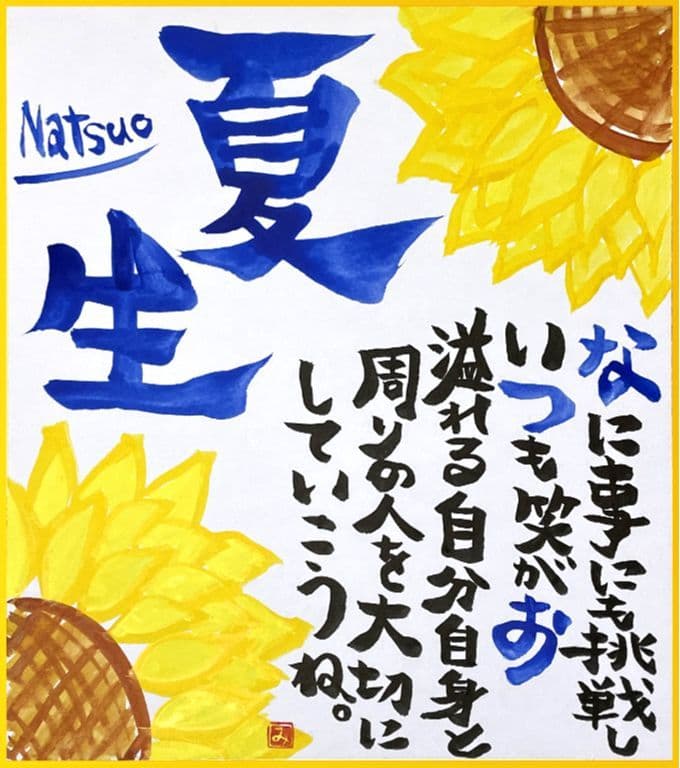 夏
生
Natsuo
なに事にも挑戦し
いつも笑がお
溢れる自分自身と
周りの人を大切に
していこうね。
み